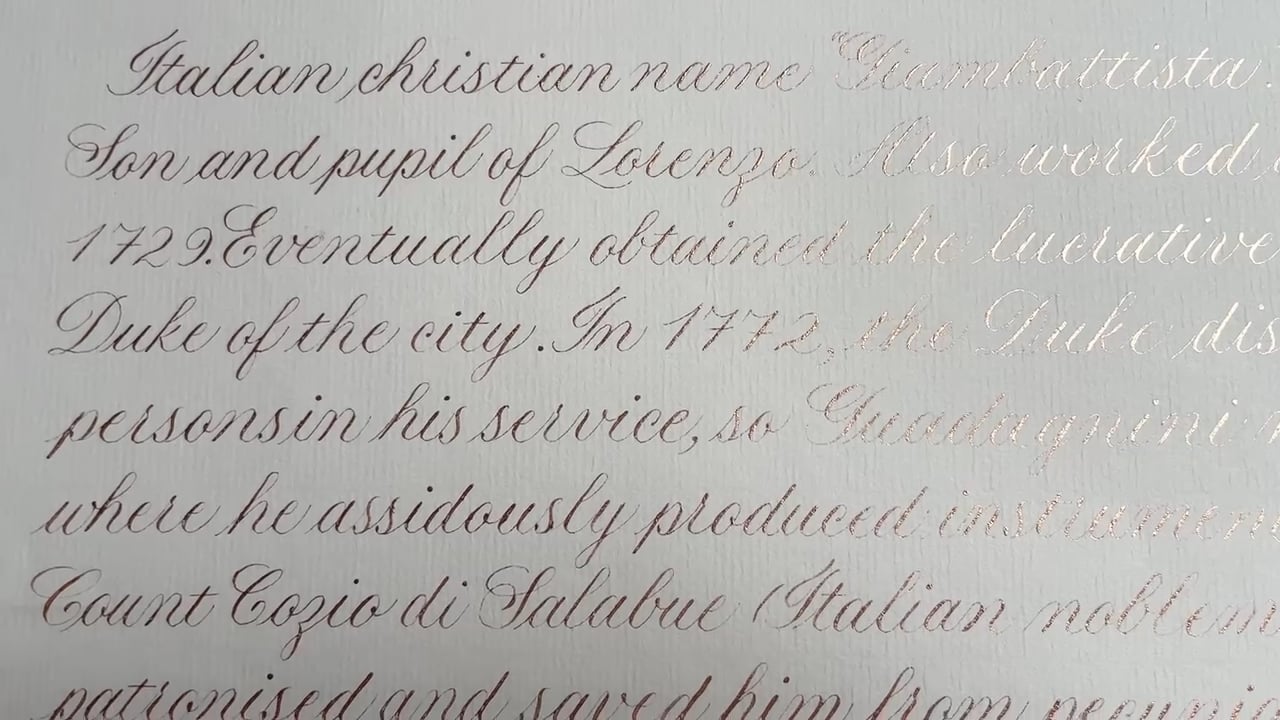 Italian christian name "Giambattista.
Son and pupil of Lorenzo. Also worked
1729. Eventually obtained the lucrative
Duke of the city. In 1772, the Duke dis
persons in his service, so Guadagnini
where he assidously produced instrumen
Count Cozio di Salabue (Italian noblem
patronised and saved him from pecunia